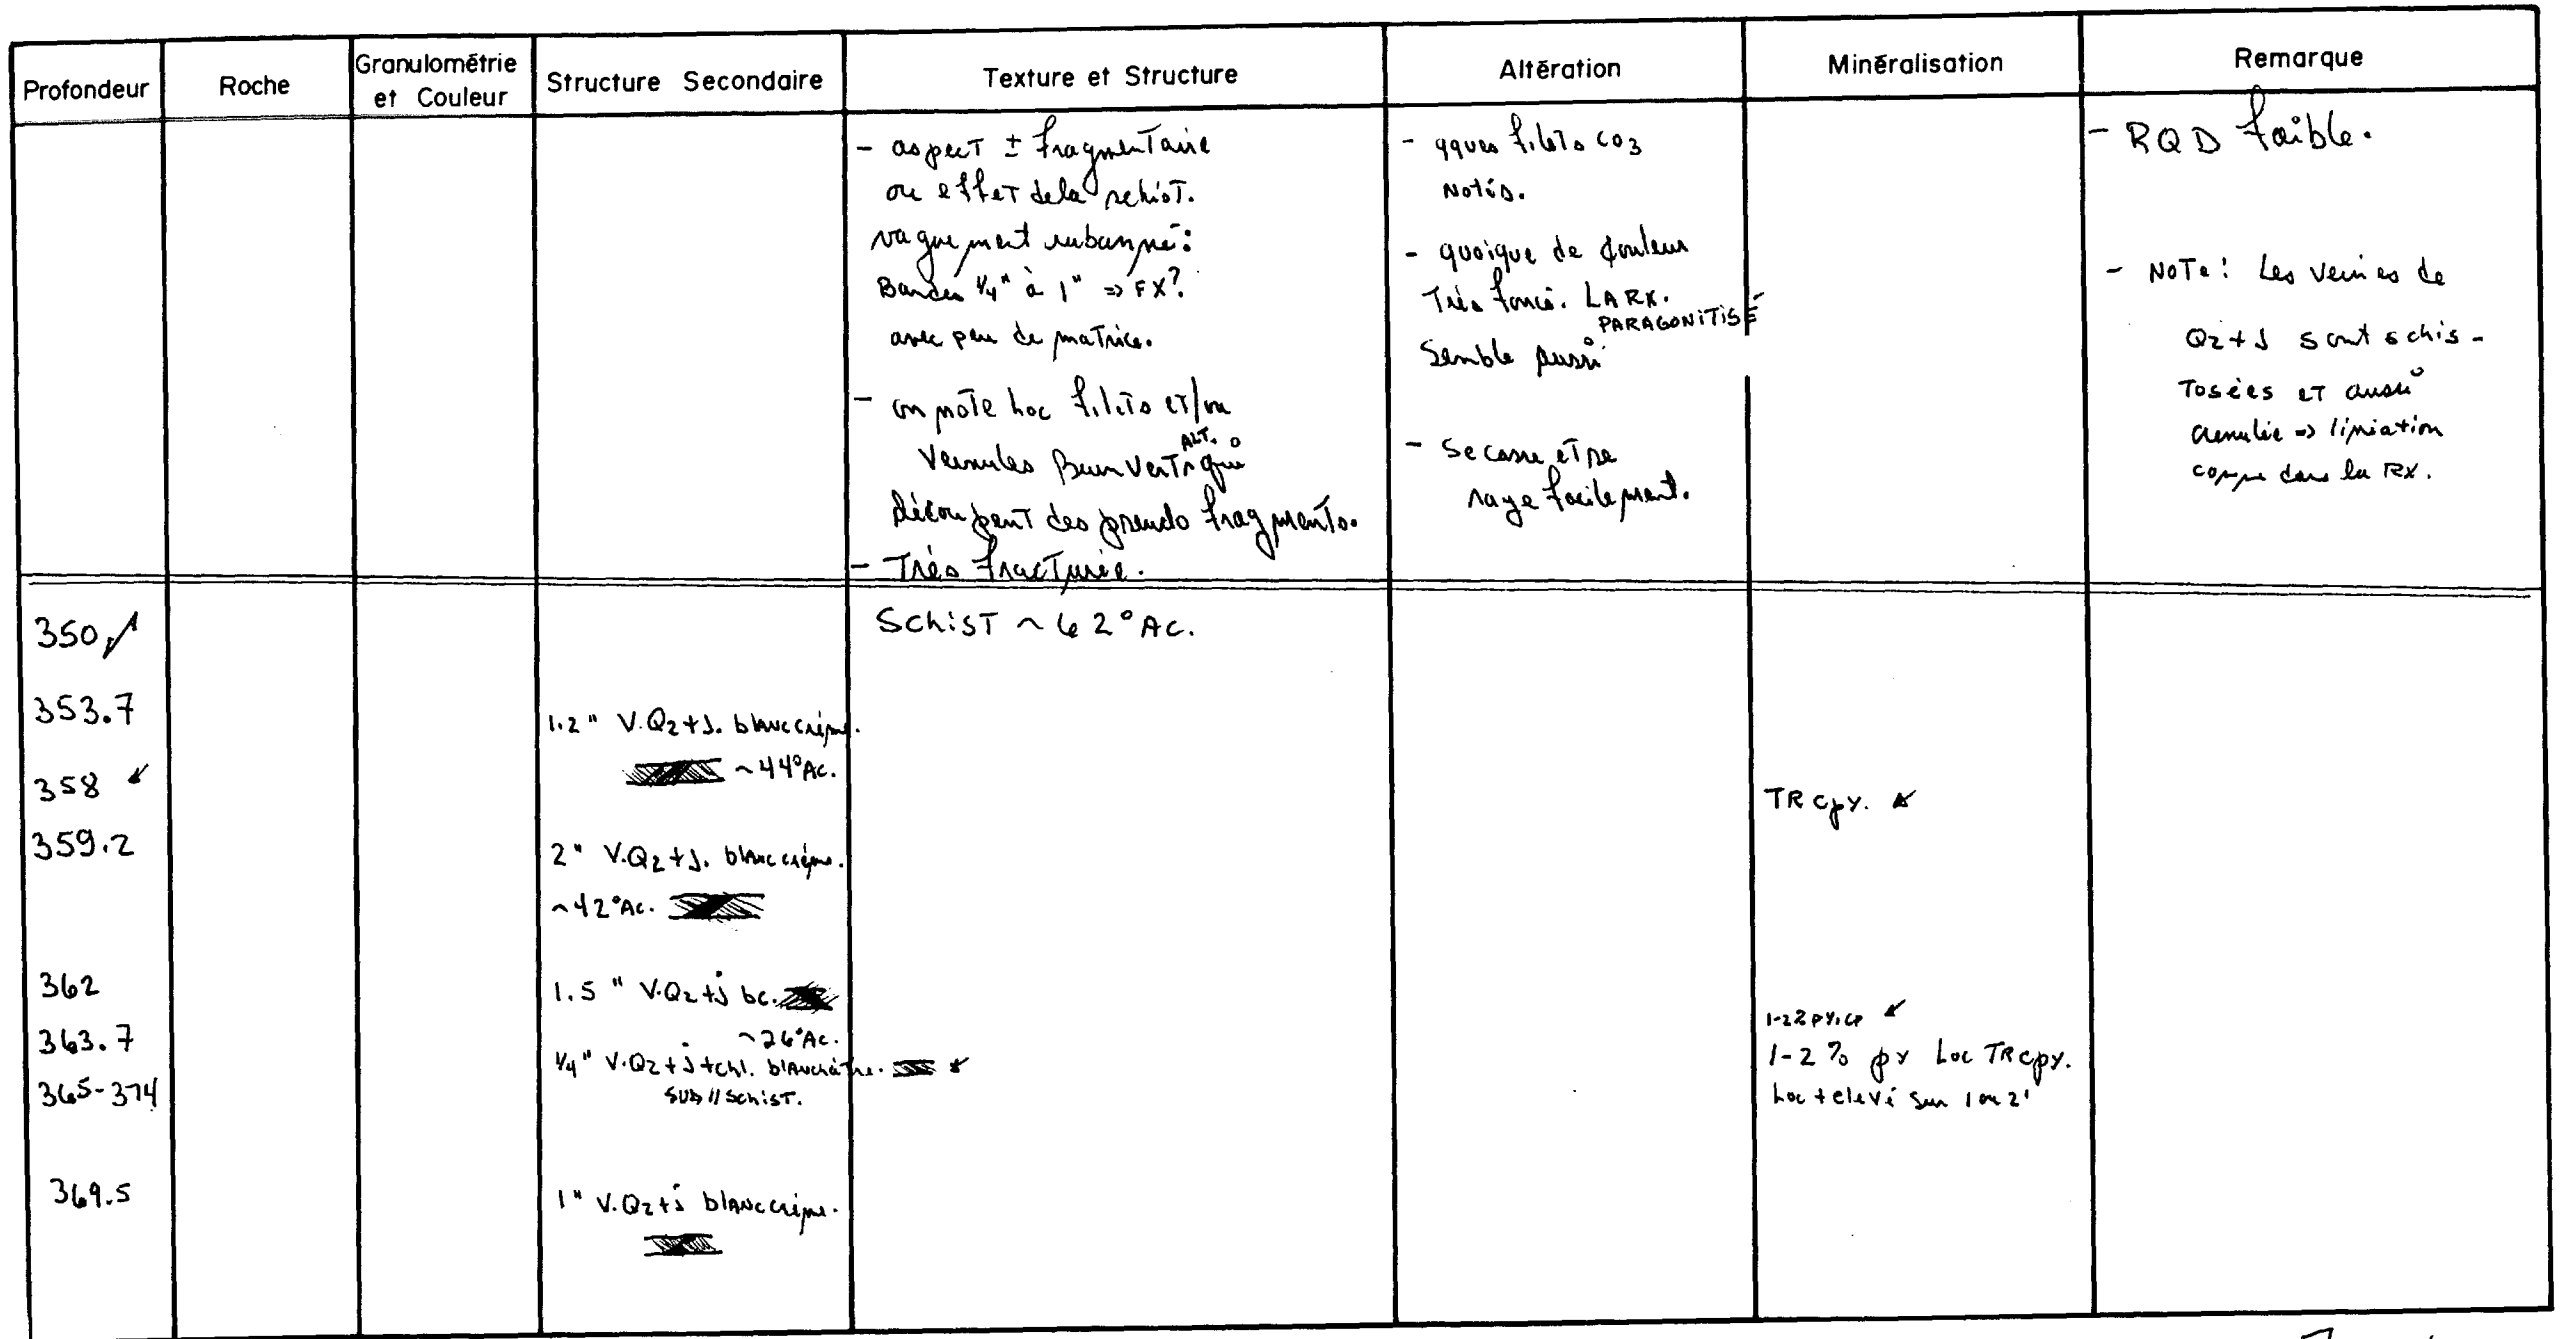 Profondeur
Roche
Granulométrie
et Couleur
Structure Secondaire
Texture et Structure
Altération
Minéralisation
Remarque
- aspect ± fragmentaire
ou effet de la schist.
vaguement rubanné:
Bandes 1/4" à 1" => FX?
avec peu de matrice.
- on note Loc filets et/ou
Veinules Brun Vert ALT. qui
découpent des pseudo fragments.
- Très fracturée.
- qques filets CO3
Notés.
- quoique de couleur
Très foncé. LA RX.
PARAGONITISÉ
Semble aussi
- Se casse et se
raye facilement.
- RQD faible.
- NOTE! Les veines de
Qz+J sont schis-
Tosées et aussi
=> liniation
comme dans la RX.
350
SchisT ~ 62° AC.
353.7
1.2" V.Qz+J. blanc crème.
~44°AC.
358
TR Cpy.
359.2
2" V.Qz+J. blanc crème.
~42°AC.
362
1.5" V.Qz+j bc.
~26°AC.
1-2% py,cp
363.7
1/4" V.Qz+j+chl. blanchâtre.
SUB // SchisT.
1-2% py Loc TR cpy.
365-374
Loc + elevé sur 1 ou 2'
369.5
1" V.Qz+j blanc crème.